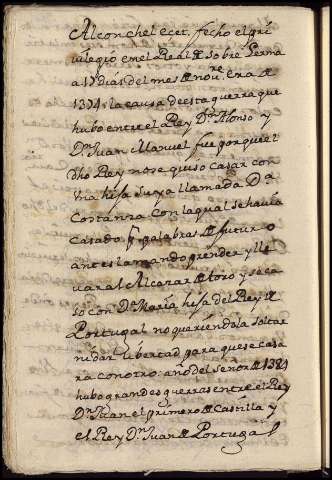 Alconchel ecet. fecho el pri
vilegio en el Real de sobre Lerma
a 17 dias del mes de nov.re Era de
1374. la causa de esta guerra que
hubo entre el Rey D.n Alonso y
D.n Juan Manuel fue porque el
dho Rey no se quiso casar con
Vna hija suya llamada D.a
Costanza con la qual se havia
Casado p.r palabras de futuro
antes la mando prender y lle
var al Alcazar de toro y se ca
so con D.a Maria hija del Rey de
Portugal no queriendola soltar
ni dar libertad para que se casa
ra con otro. año del señor de 1384
hubo grandes guerras entre el Rey
D.n Juan el primero de Castilla y
el Rey D.n Juan de Portugal